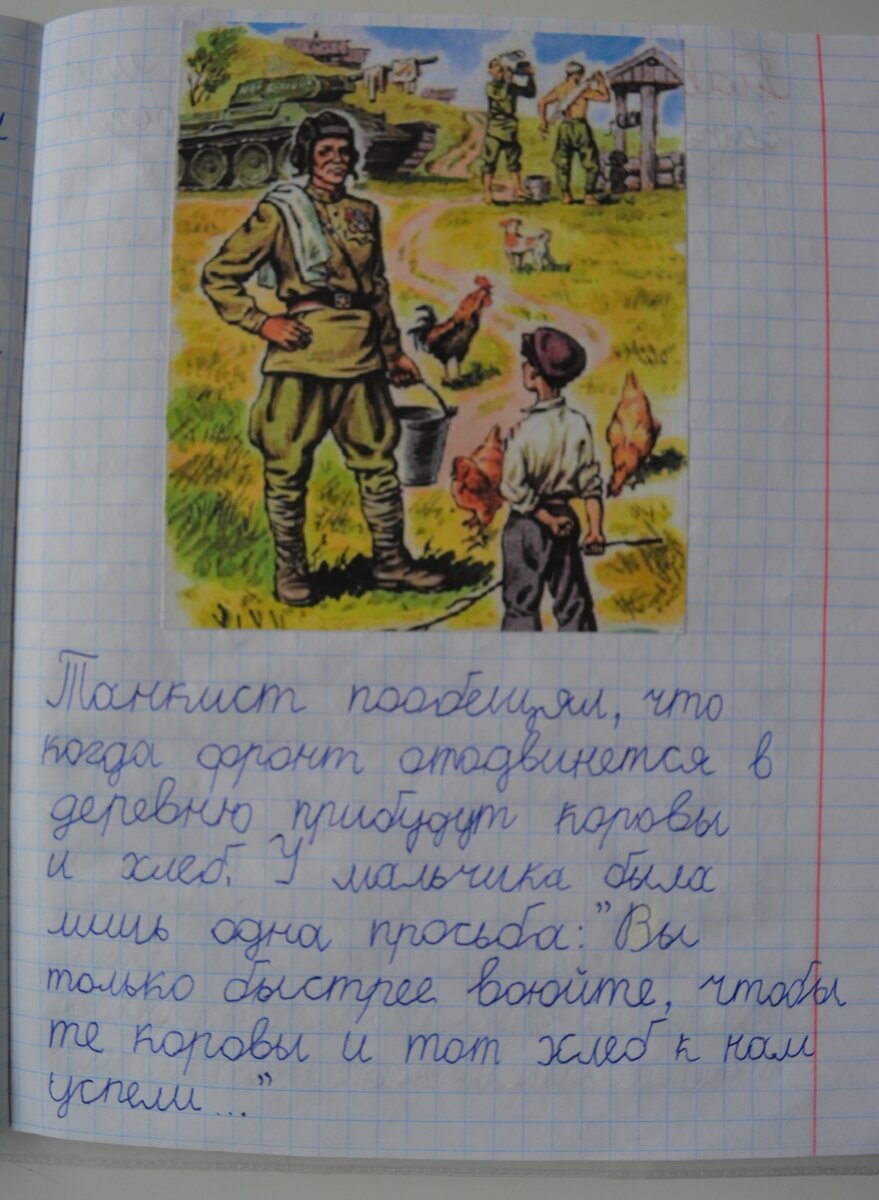 Танкист пообещял, что
когда фронт отодвинется в
деревню прибудут коровы
и хлеб. У мальчика была
лишь одна просьба: "Вы
только быстрее воюйте, чтобы
те коровы и тот хлеб к нам
успели..."